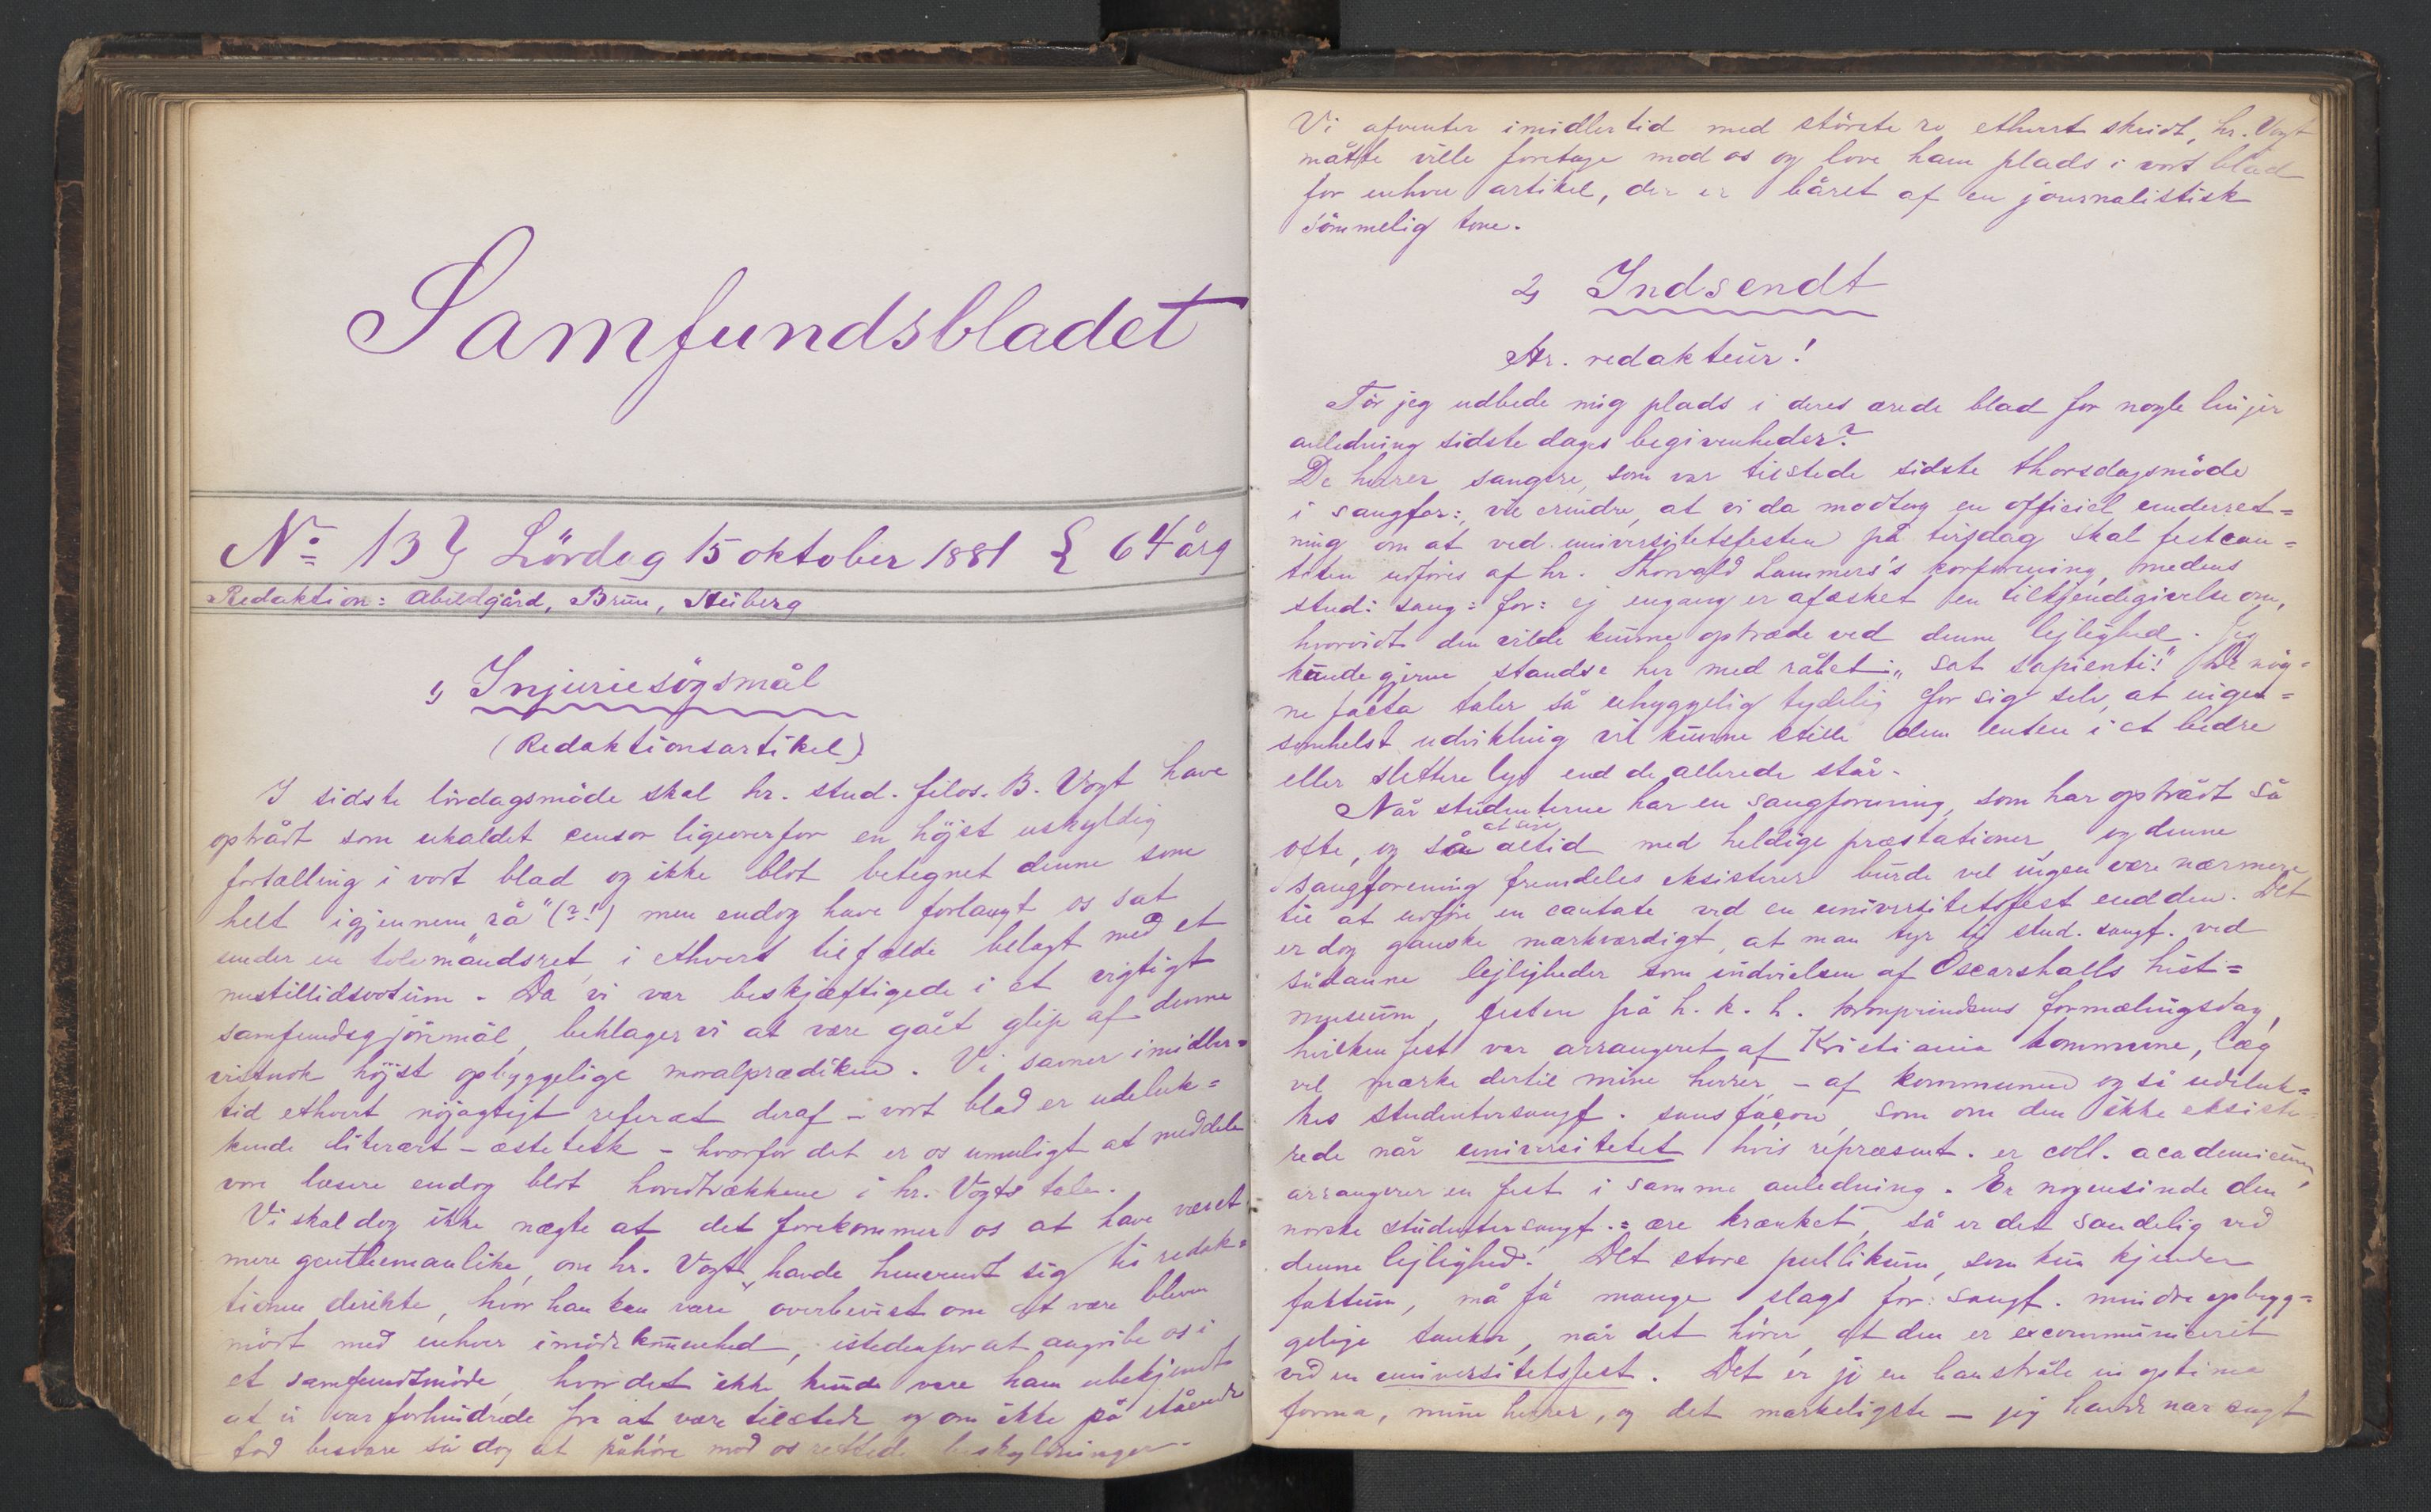 Samfundsbladet
No 13 } Lördag 15 oktober 1881 { 64 årg
Redaktion: Abildgård, Brun, Heiberg
1) Injuriesögsmål
(Redaktionsartikel)
I sidste lördagsmöde skal hr. stud. filos. B. Vogt have
optrådt som ukaldet censor ligeoverfor en höjst uskyldig
fortælling i vort blad og ikke blot betegnet denne som
helt igjennem "rå" (?!) men endog have forlangt os sat
under en tolvmandsret, i ethvert tilfælde belagt med et
mistillidsvotum. Da vi var beskjæftigede i et vigtigt
samfundsgjöremål, beklager vi at være gået glip af denne
vistnok höjst opbyggelige moralprædiken. Vi savner imidler=
tid ethvert nöjagtigt referat deraf – vort blad er udeluk=
kende literært-æstetisk – hvorfor det er os umuligt at meddele
vore læsere endog blot hovedtrækkene i hr. Vogts tale.
Vi skal dog ikke nægte at det forekommer os at have været
mere gentlemanlike, om hr. Vogt havde henvendt sig til redak=
tionen direkte, hvor han kan være overbevist om at være bleven
mödt med enhver imödekommenhed, istedenfor at angribe os i
et samfundsmöde, hvor det ikke kunde være ham ubekjendt
at vi var forhindrede fra at være tilstede og om ikke på stående
fod besvare så dog at påhöre mod os rettede beskyldninger.
Vi afventer imidlertid med störste ro ethvert skridt, hr. Vogt
måtte ville foretage mod os og love ham plads i vort blad
for enhver artikel, der er båret af en journalistisk
sömmelig tone.
2) Indsendt
Hr. redakteur!
Tör jeg udbede mig plads i deres ærede blad for nogle linjer
anledning sidste dages begivenheder?
De herrer sangere, som var tilstede sidste thorsdagsmöde
i sangfor:, vil erindre, at vi da modtog en officiel underret=
ning om at ved universitetsfesten på tirsdag skal festcan=
taten udföres af hr. Thorvald Lammers's korforening, medens
stud: sang: for: ej engang er afæsket en tilkjendegivelse om,
hvorvidt den vilde kunne optræde ved denne lejlighed. Jeg
kunde gjerne standse her med råbet: "sat sapienti!" De nög=
ne facta taler så uhyggelig tydelig for sig selv, at ingen=
somhelst udvikling vil kunne stille dem enten i et bedre
eller slettere lys end de allerede står.
Når studenterne har en sangforening, som har optrådt så
ofte, og så at sige altid med heldige præstationer, og denne
sangforening fremdeles eksisterer burde vel ingen være nærmere
til at udföre en cantate ved en universitetsfest end den. Det
er dog ganske mærkværdigt, at man tyr til stud. sangf. ved
sådanne lejligheder som indvielsen af Oscarshalls hist=
museum, festen på h. k. h. kronprindsens formælingsdag,
hvilken fest var arrangeret af Kristiania kommune, læg
vel mærke dertil mine herrer, – af kommunen og så udeluk=
kes studentersangf. sans façon, som om den ikke eksiste=
rede når universitetet hvis repræsent. er coll. academicum,
arrangerer en fest i samme anledning. Er nogensinde den
norske studentersangf.= ære krænket, så er det sandelig ved
denne lejlighed! Det store publikum, som kun kjender
faktum, må få mange slags for sangf. mindre opbygg=
gelige tanker, når det hörer, at den er excommuniceret
ved en universitetsfest. Det er jo en banstråle in optima
forma, mine herrer, og det mærkeligste – jeg havde nær sagt